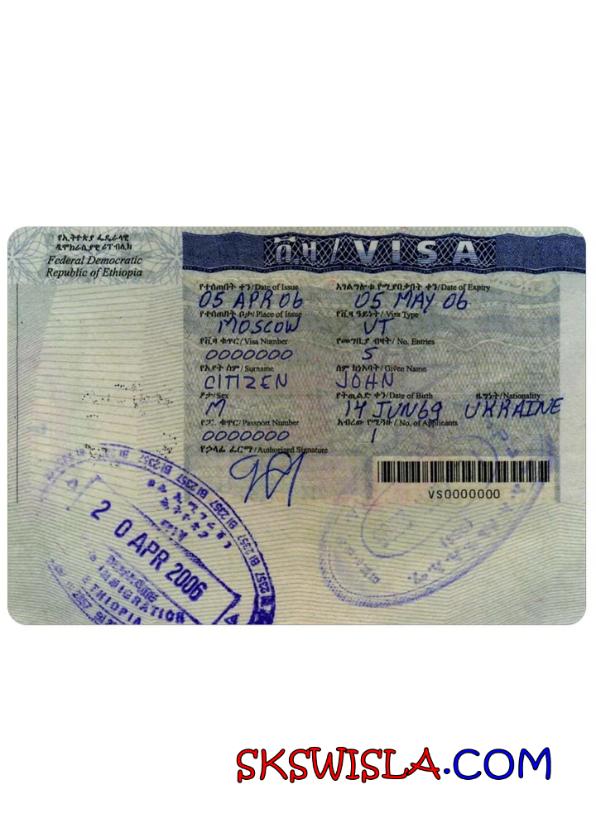 የኢትዮጵያ ፌዴራላዊ
ዲሞክራሲያዊ ሪፐብሊክ
Federal Democratic
Republic of Ethiopia
ቪዛ / VISA
የተሰጠበት ቀን / Date of Issue
05 APR 06
አገልግሎቱ የሚያበቃበት ቀን / Date of Expiry
05 MAY 06
የተሰጠበት ቦታ / Place of Issue
MOSCOW
የቪዛ ዓይነት / Visa Type
VT
የቪዛ ቁጥር / Visa Number
0000000
የመግቢያ ብዛት / No. Entries
S
የአያት ስም / Surname
CITIZEN
ስም ከነአባት / Given Name
JOHN
ፆታ / Sex
M
የትዉልድ ቀን / Date of Birth
14 JUN 69
ዜግነት / Nationality
UKRAINE
የፓ. ቁጥር / Passport Number
0000000
አብረው የሚጓዙ / No. of Applicants
1
የኃላፊ ፊርማ / Authorized Signature
VS0000000
BI 2357 BI 2357 BI 2357
2 0 APR 2006
IMMIGRATION
ETHIOPIA
SKSWISLA.COM